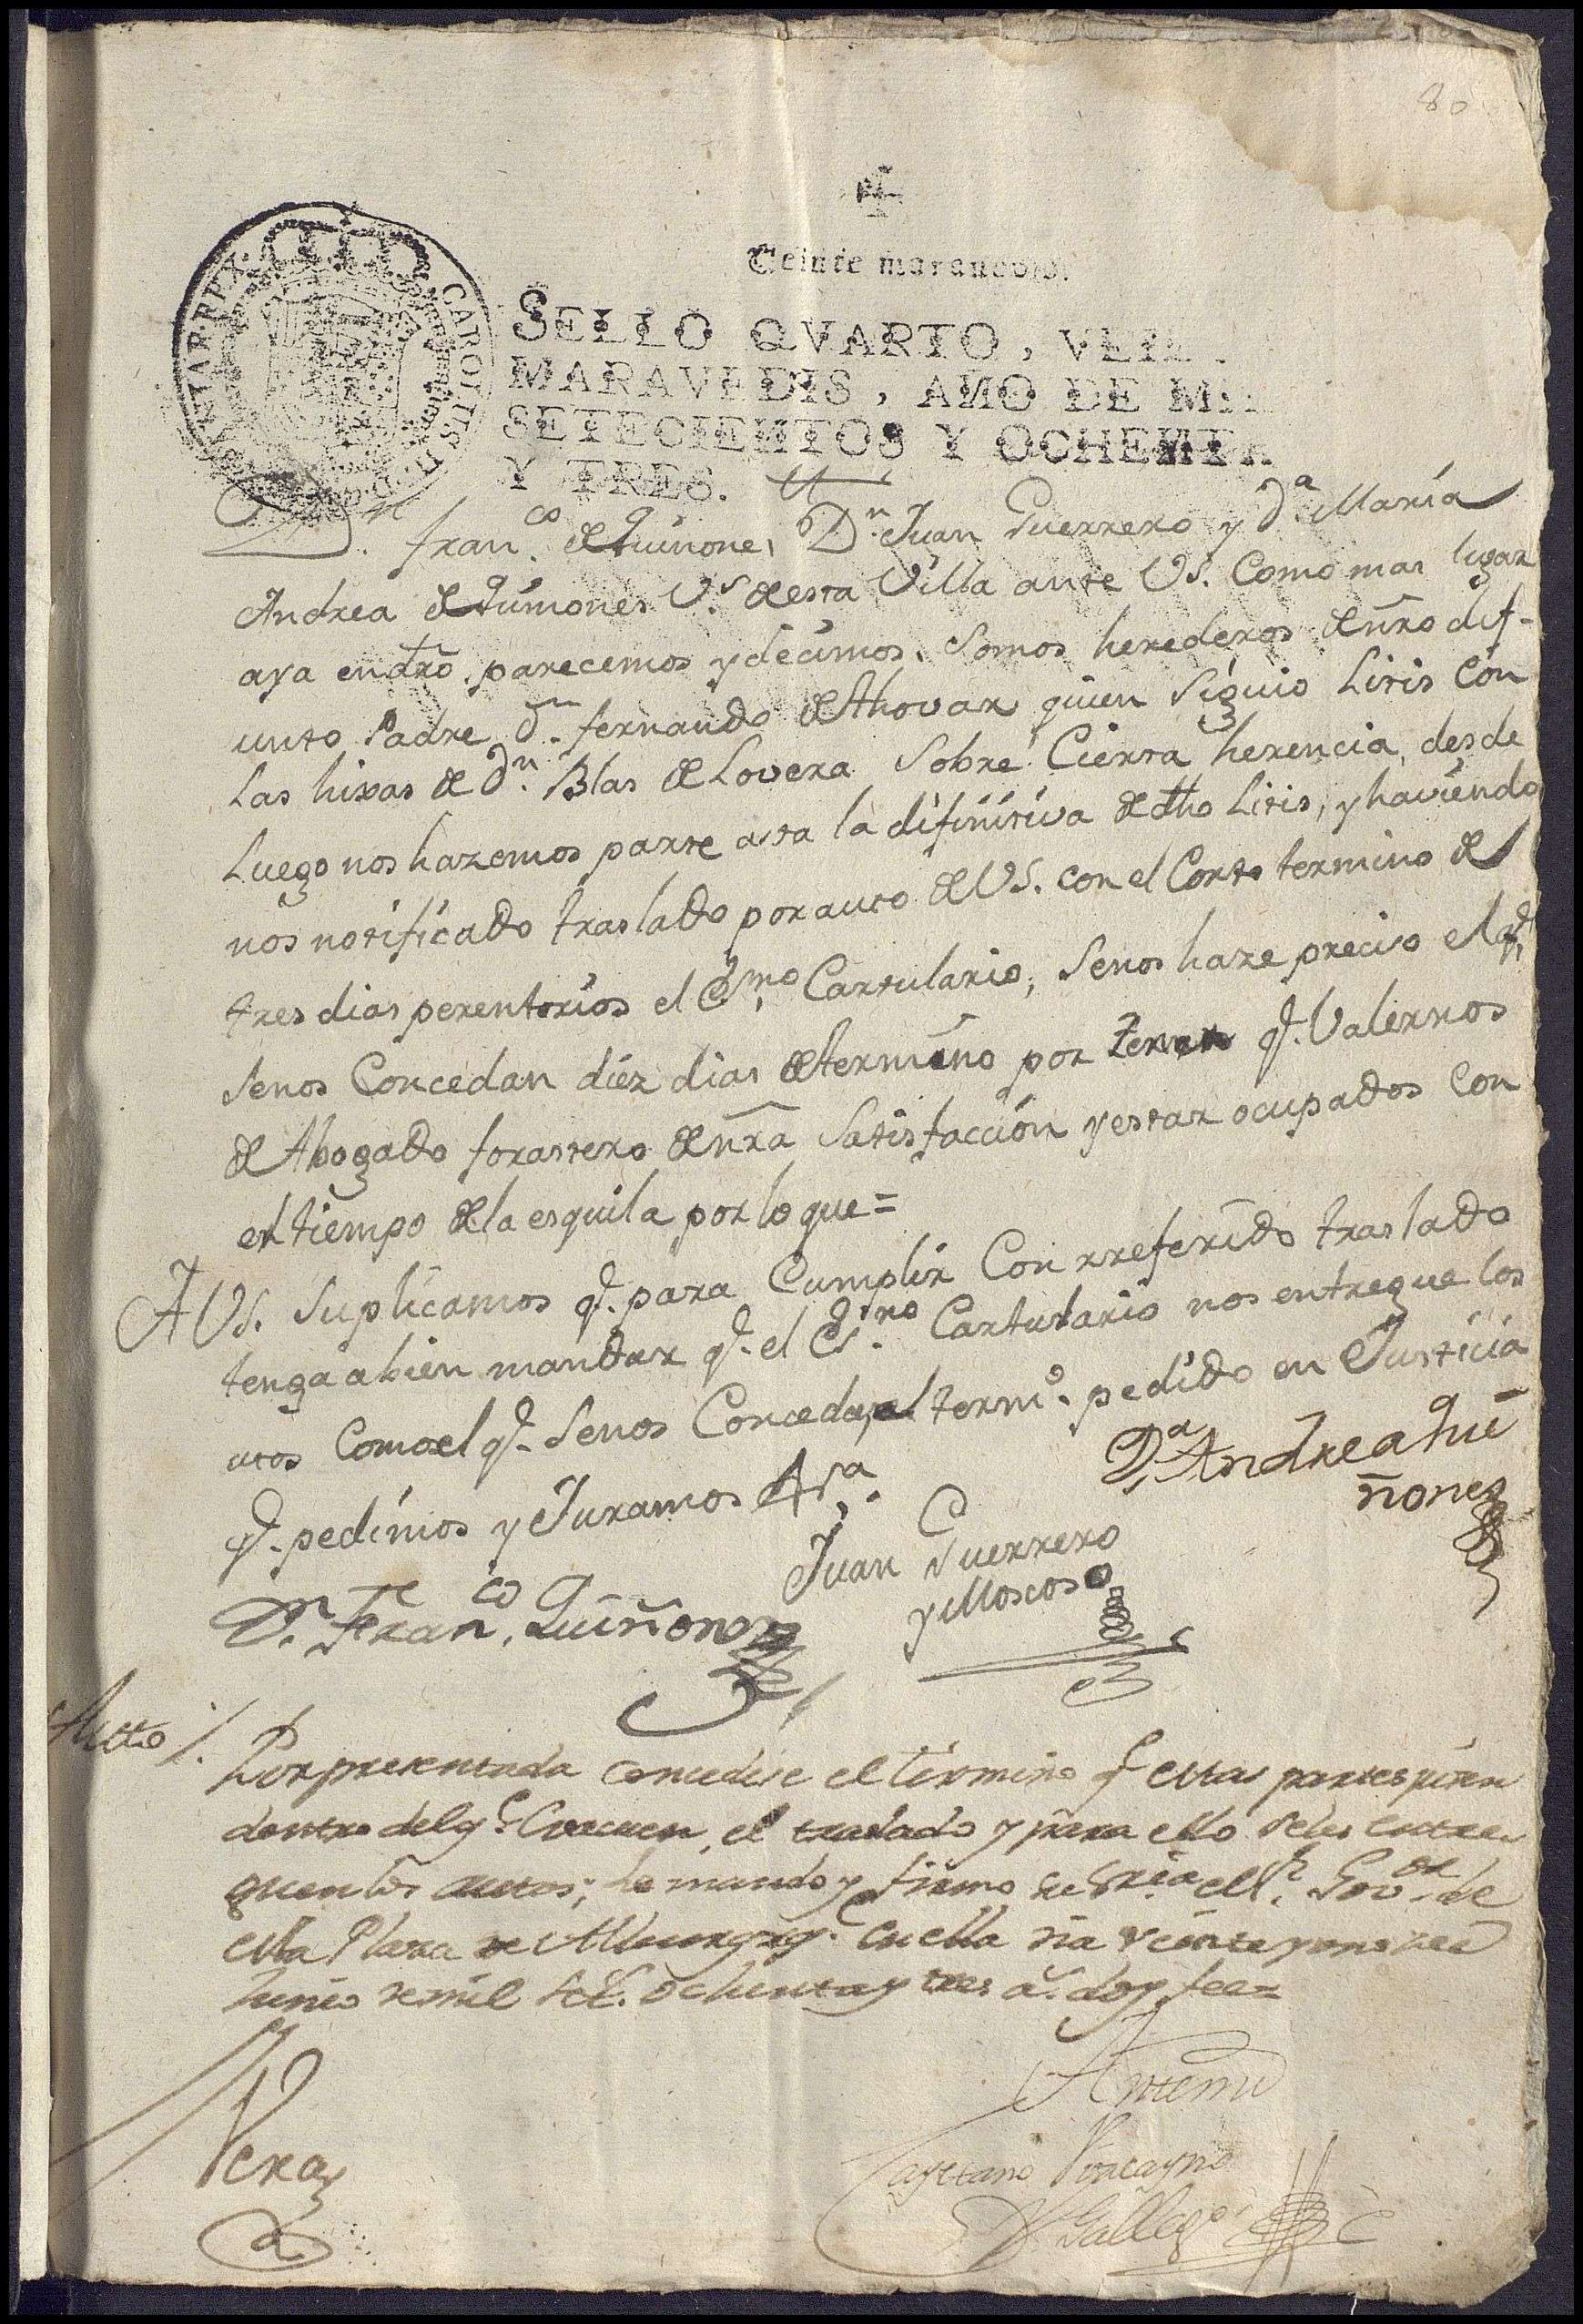 80
Veinte maravedis.
SELLO QVARTO, VEIN
MARAVEDIS, AÑO DE MI
SETECIENTOS Y OCHENTA
Y TRES.
CAROLUS III D
Dn. Franco. de Quiñones, Dn. Juan Guerrero y Da. María
Andrea de Quiñones Vs. de esta Villa ante VS. Como mas lugar
aya en dro. parecemos y decimos. Somos herederos de nro dif-
unto Padre Dn. fernando de thovar quien Siguio Litis Con
Las hixas de Dn. Blas de Lovera Sobre Cierta herencia, desde
Luego nos hazemos parte asta la difinitiva de dho Litis, y haviendo
nos notificado traslado por auto de VS. con el Corto termino de
tres dias perentorios el Esno. Cartulario, Senos haze preciso el q.
Senos Concedan diez dias de termino por tener q. Valernos
de Abogado forastero de nra Satisfacción y estar ocupados Con
el tiempo de la esquila por lo que =
A VS. Suplicamos q. para Cumplir Con rreferido traslado
tenga abien mandar q. el Esno. Cartulario nos entregue los
utos Como el q. Senos Conceda el termo. pedido en Justicia
q. pedimos y Juramos
Da. Andrea Qui
ñones
Juan Guerrero
y Moscoso
Dn. Franco. Quiñones
Autto /.
Por presentada concedese el término q estas partes piden
dentro del q. Evacuen el traslado y para ello seles entre
guen los autos; lo mando y firmo su sria el Sr. Govor. de
esta Plaza de Alburqrq. en ella dia veinte y uno de
Junio de mil setz. ochenta y tres as. doy fee =
Vera
Antemi
Cayetano Vizcayno
Gallego